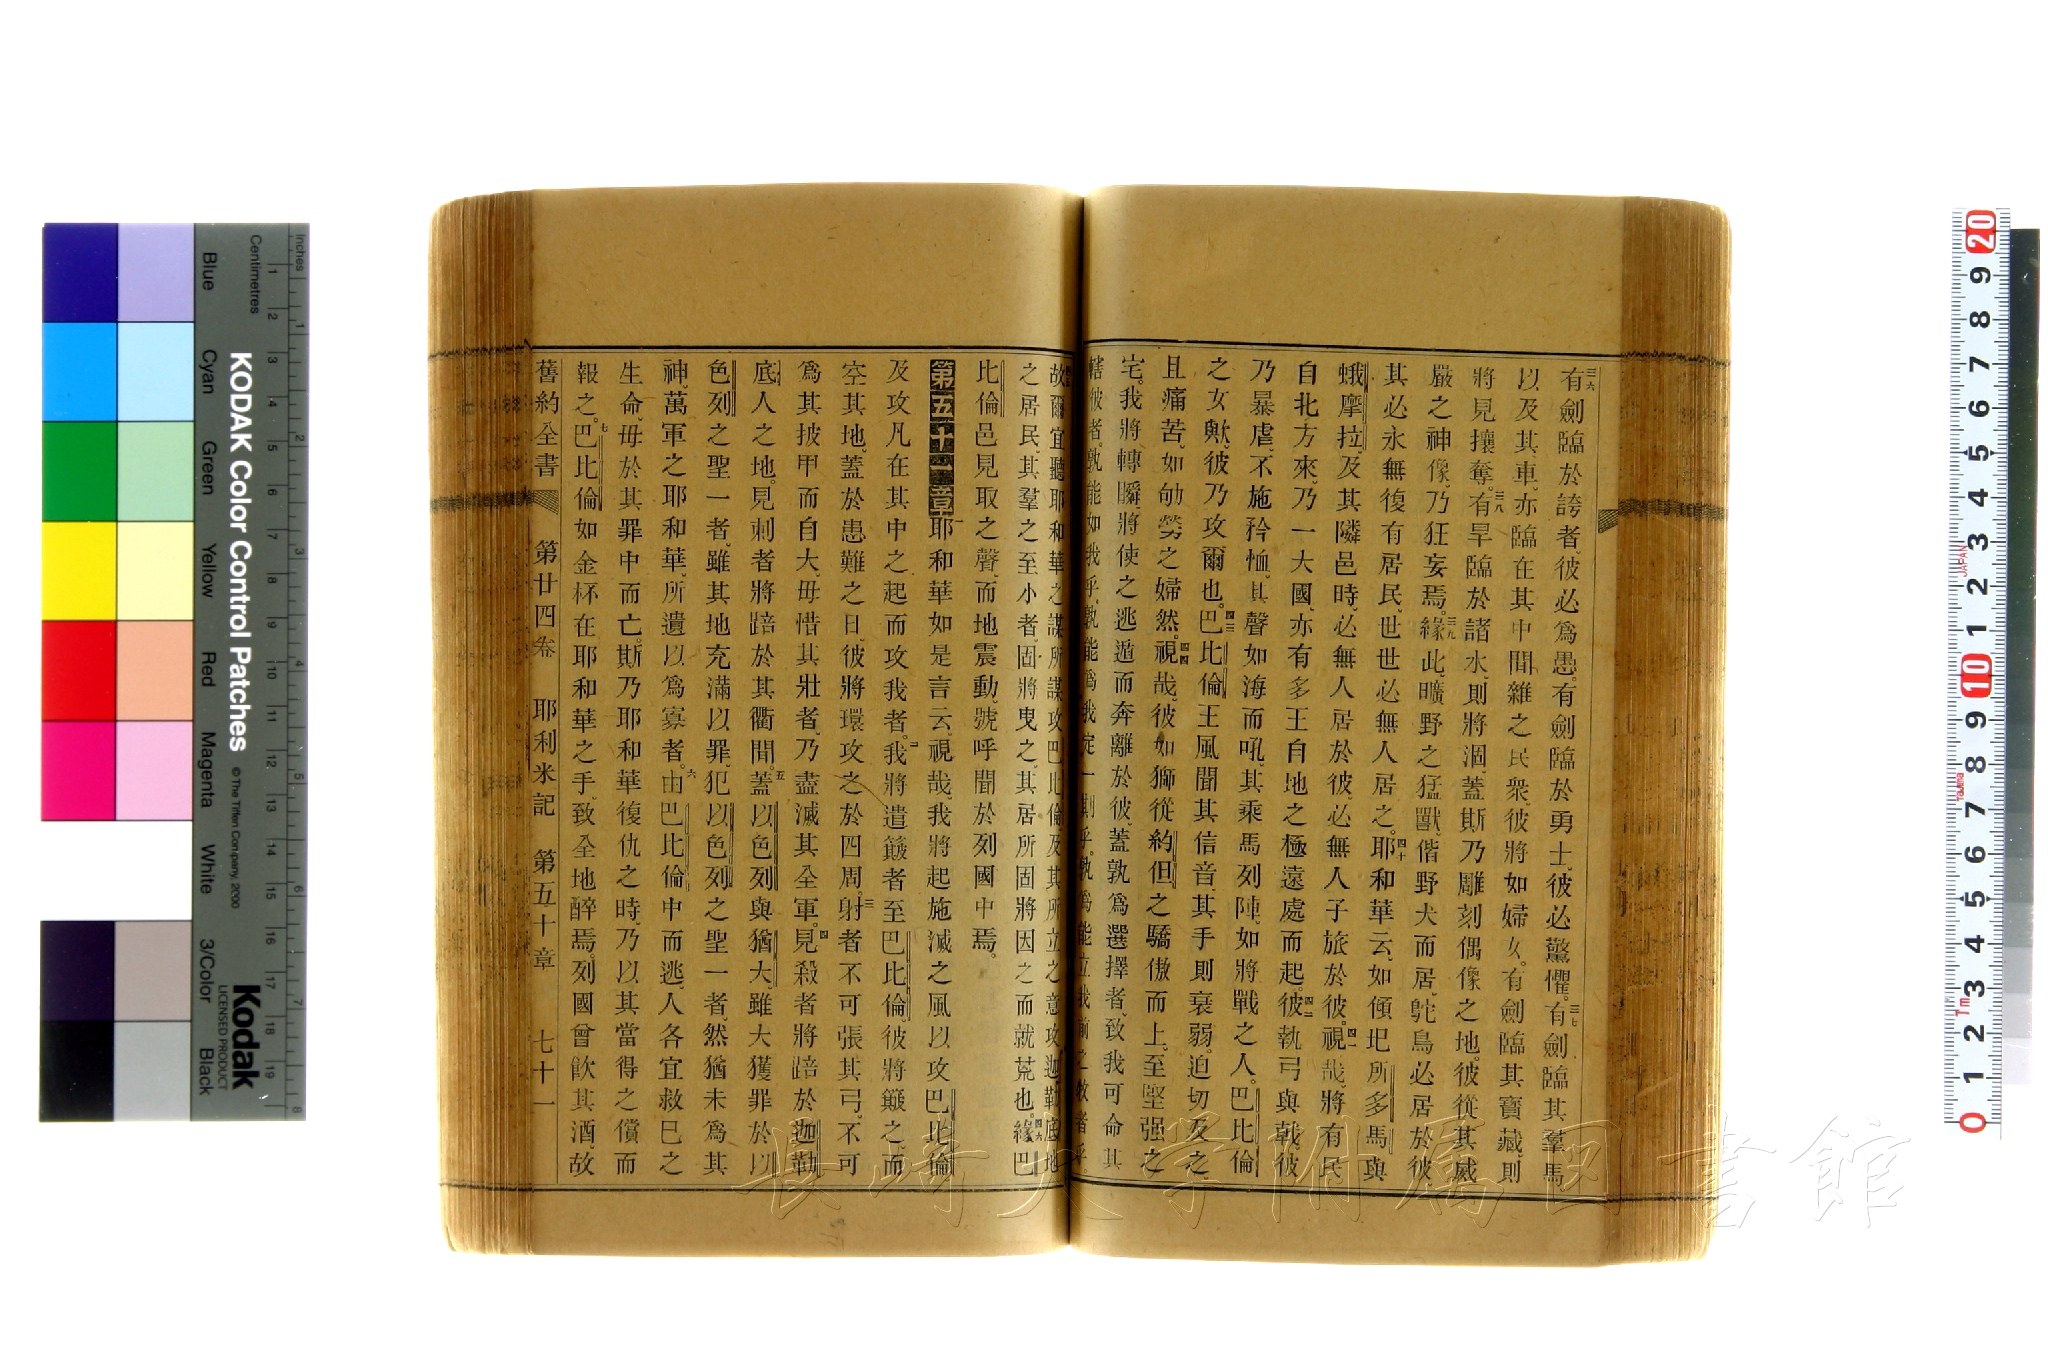 有劍臨於誇者、彼必爲愚。有劍臨於勇士、彼必驚懼。有劍臨其羣馬
以及其車、亦臨在其中間雜之民衆、彼將如婦女。有劍臨其寶藏、則
將見攘奪。有旱臨於諸水、則將涸、蓋斯乃雕刻偶像之地。彼從其威
嚴之神像、乃狂妄焉。緣此、曠野之猛獸偕野犬而居、鴕鳥必居於彼、
其必永無復有居民、世世必無人居之。耶和華云、如傾圯所多馬與
蛾摩拉、及其隣邑時、必無人居於彼、必無人子旅於彼。視哉、將有民
自北方來、乃一大國、亦有多王自地之極遠處而起。彼執弓與戟、彼
乃暴虐、不施矜恤、其聲如海而吼、其乘馬列陣、如將戰之人。巴比倫
之女歟、彼乃攻爾也。巴比倫王風聞其信音、其手則衰弱。迫切及之、
且痛苦、如劬勞之婦然。視哉、彼如獅從約但之驕傲而上、至堅强之
宅。我將轉瞬、將使之逃遁而奔離於彼、蓋孰爲選擇者、致我可命其
轄彼者。孰能如我乎、孰能爲我定一期乎。孰爲能立我前之牧者乎
故爾宜聽耶和華之謀所謀攻巴比倫、及其所立之意攻迦勒底地
之居民、其羣之至小者、固將曳之、其居所固將因之而就荒也。緣巴
比倫邑見取之聲、而地震動、號呼聞於列國中焉。
第五十章 耶和華如是言云、視哉我將起施滅之風以攻巴比倫
及攻凡在其中之起而攻我者。我將遣簸者至巴比倫、彼將簸之、而
空其地、蓋於患難之日、彼將環攻之於四周。射者不可張其弓、不可
爲其披甲而自大、毋惜其壯者、乃盡滅其全軍。見殺者將踣於迦勒
底人之地。見刺者將踣於其衢間。蓋以色列與猶大、雖大獲罪於以
色列之聖一者、雖其地充滿以罪、犯以色列之聖一者、然猶未爲其
神、萬軍之耶和華、所遺以爲寡者。由巴比倫中而逃、人各宜救己之
生命、毋於其罪中而亡。斯乃耶和華復仇之時、乃以其當得之償而
報之。巴比倫如金杯在耶和華之手、致全地醉焉。列國曾飮其酒、故
舊約全書 第廿四卷 耶利米記 第五十章 七十一
KODAK Color Control Patches
© The Tiffen Company, 2000
Kodak
LICENSED PRODUCT
Inches
Centimetres
Blue Cyan Green Yellow Red Magenta White 3/Color Black
長崎大学附属図書館